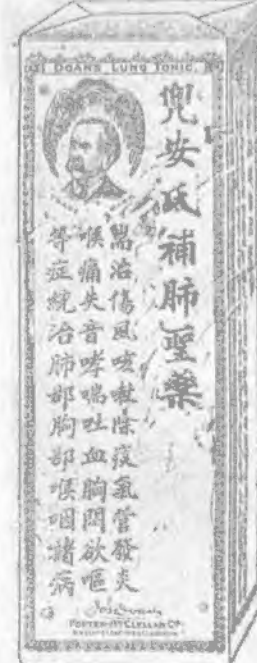 DOAN'S LUNG TONIC.
兜安氏補肺聖藥
耑治傷風咳嗽除痰氣管發炎
喉痛失音哮喘吐血胸悶欲嘔
等症統治肺部胸部喉咽諸病
FOSTER-MCCLELLAN CO.